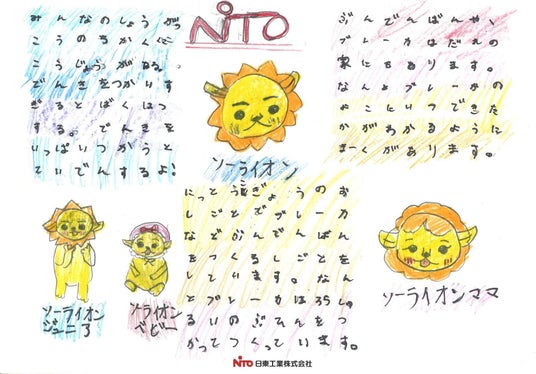 NITO
みんなのしょうがっ
こうのちかくに
こうじょうがある。
でんきをつかいす
ぎるとばくはつ
する。でんきを
いっぱいつかうと
ていでんするよ!
ソーライオン
ぶんでんばんや、
ブレーカはだれの
家にもあります。
なんとブレーカの
やこにいつできた
かがわかるように
まーくがあります。
ソーライオン
ジュニア
ソーライオン
ベビー
にっとうこうぎょうの
しごとでブレーカ
などぶんでんばん
をつくるしごとを
しています。なん
とブレーカは35しゅ
るいのぶひんをつ
かってつくっています。
ソーライオンママ
NITO 日東工業株式会社